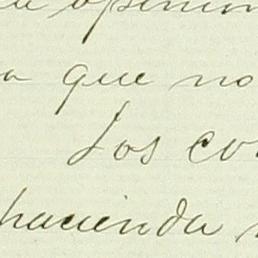 opinion
a que no
Los co
hacienda